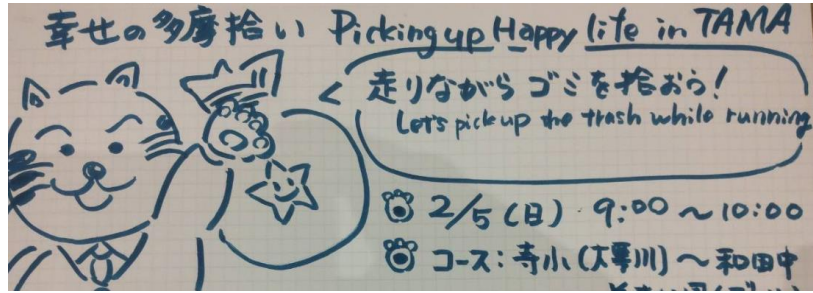 幸せの多摩拾い Picking up Happy life in TAMA
走りながらゴミを拾おう!
Let's pick up the trash while running
2/5(日) 9:00~10:00
コース:寺小(大栗川)~和田中